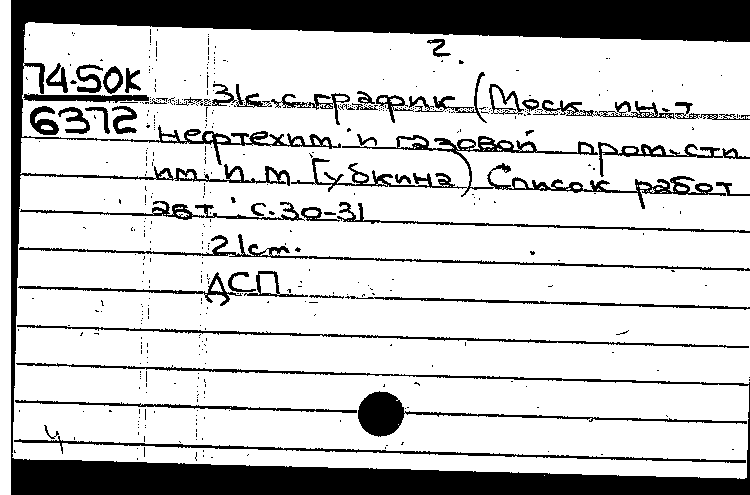 2.
74-50К 31с. с график (Моск. ин-т
6372 нефтехим. и газовой пром-сти
им. И. М. Губкина) Список работ
авт.: с. 30-31
21 см.
ДСП.
4